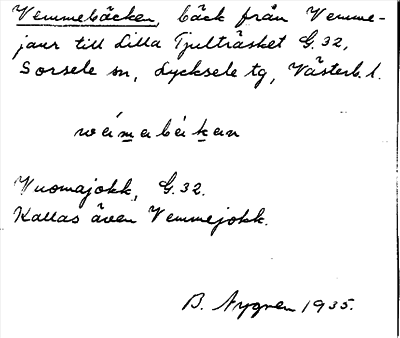 Vemmebäcken, bäck från Vemme-
jaur till Lilla Tjulträsket G. 32,
Sorsele sn, Lycksele tg, Västerb. l.
Vuomajokk, G. 32.
Kallas även Vemmejokk.
B. Nygren 1935.